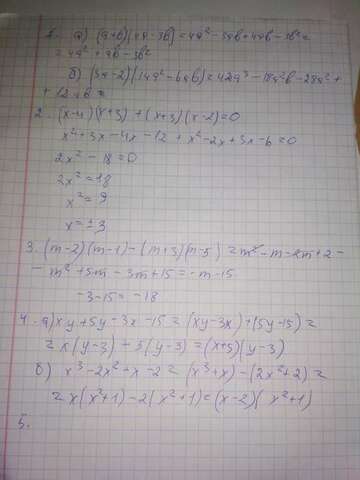 1. а) (a+b)(4a-3b)=4a²-3ab+4ab-3b²=
=4a²+ab-3b²
б) (3a-2)(14a²-6ab)=42a³-18a²b-28a²+
+12ab=
2. (x-4)(x+3)+(x+3)(x-2)=0
x²+3x-4x-12+x²-2x+3x-6=0
2x²-18=0
2x²=18
x²=9
x=±3
3. (m-2)(m-1)-(m+3)(m-5)=m²-m-2m+2-
- m²+5m-3m+15=-m-15
-3-15=-18
4. а) xy+5y-3x-15=(xy-3x)+(5y-15)=
=x(y-3)-5(y-3)=(x+5)(y-3)
б) x³-2x²+x-2=(x³+x)-(2x²+2)=
=x(x²+1)-2(x²+1)=(x-2)(x²+1)
5.